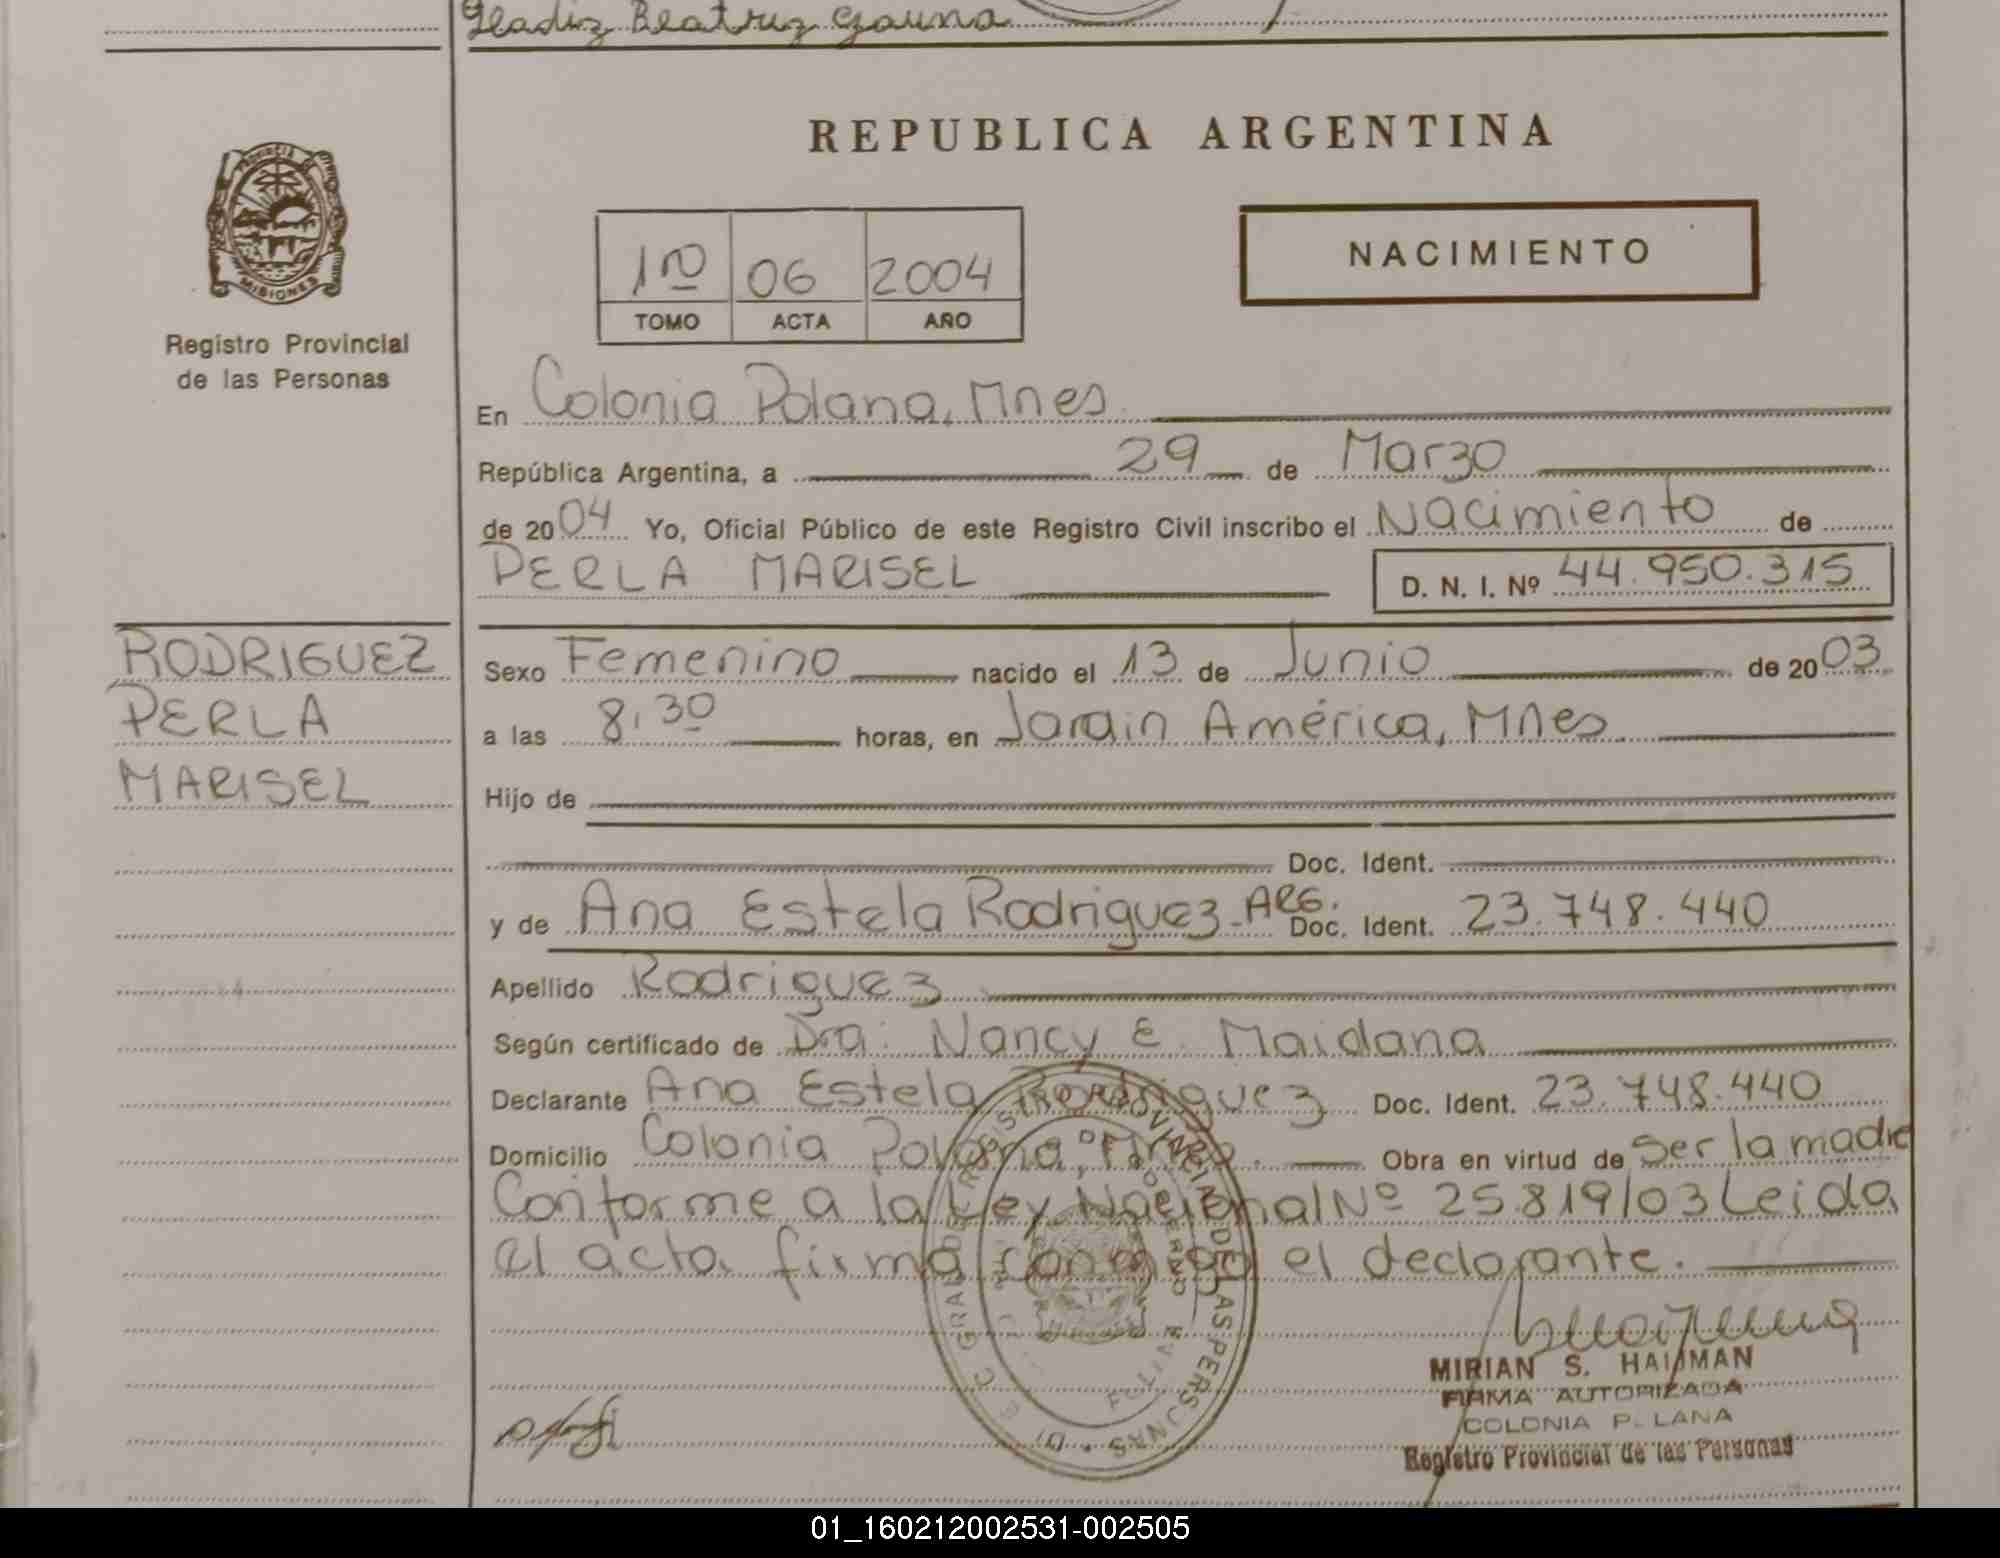 Gladiz Beatriz Gauna
REPUBLICA ARGENTINA
PROVINCIA DE
MISIONES
Registro Provincial
de las Personas
1ro 06 2004
TOMO ACTA AÑO
NACIMIENTO
En Colonia Polana, Mnes
República Argentina, a 29 de Marzo
de 2004 Yo, Oficial Público de este Registro Civil inscribo el Nacimiento de
PERLA MARISEL D. N. I. Nº 44.950.315
RODRIGUEZ
PERLA
MARISEL
Sexo Femenino nacido el 13 de Junio de 2003
a las 8,30 horas, en Jardin América, Mnes
Hijo de
Doc. Ident.
y de Ana Estela Rodriguez - ARG. Doc. Ident. 23.748.440
Apellido Rodriguez
Según certificado de Dra. Nancy E. Maidana
Declarante Ana Estela Rodriguez Doc. Ident. 23.748.440
Domicilio Colonia Polana, Mnes. Obra en virtud de ser la madre
Conforme a la Ley Nacional Nº 25.819/03 Leida
el acta firma conmigo el declarante.
MIRIAN S. HAUMAN
FIRMA AUTORIZADA
COLONIA P. LANA
Registro Provincial de las Personas
01_160212002531-002505